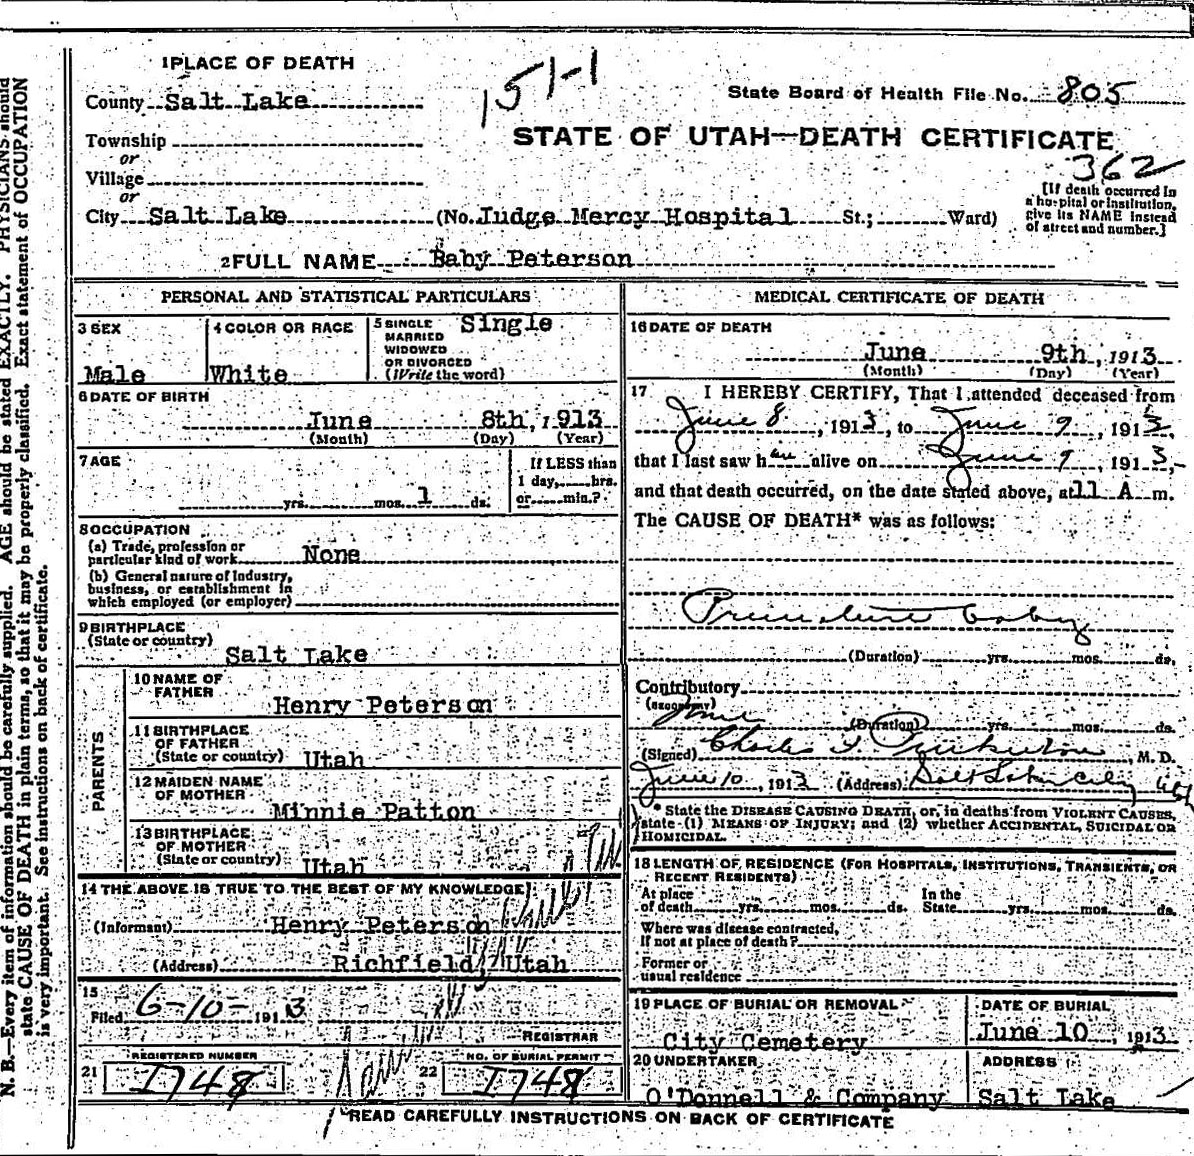 1 PLACE OF DEATH
151-1
County Salt Lake
State Board of Health File No. 805
Township
or
STATE OF UTAH—DEATH CERTIFICATE
362
Village
or
City Salt Lake (No. Judge Mercy Hospital St.; Ward)
[If death occurred in
a hospital or institution,
give its NAME instead
of street and number.]
2 FULL NAME Baby Peterson
PERSONAL AND STATISTICAL PARTICULARS
3 SEX
Male
4 COLOR OR RACE
White
5 SINGLE
MARRIED
WIDOWED
OR DIVORCED
(Write the word)
Single
6 DATE OF BIRTH
June 8th, 1913
(Month) (Day) (Year)
7 AGE
yrs. mos. 1 ds.
If LESS than
1 day, hrs.
or min.?
8 OCCUPATION
(a) Trade, profession or
particular kind of work None
(b) General nature of industry,
business, or establishment in
which employed (or employer)
9 BIRTHPLACE
(State or country)
Salt Lake
PARENTS
10 NAME OF
FATHER
Henry Peterson
11 BIRTHPLACE
OF FATHER
(State or country) Utah
12 MAIDEN NAME
OF MOTHER
Minnie Patton
13 BIRTHPLACE
OF MOTHER
(State or country)
Utah
14 THE ABOVE IS TRUE TO THE BEST OF MY KNOWLEDGE
(Informant) Henry Peterson
(Address) Richfield, Utah
15
Filed 6-10- 1913
REGISTRAR
21 REGISTERED NUMBER
I748
22 NO. OF BURIAL PERMIT
I748
MEDICAL CERTIFICATE OF DEATH
16 DATE OF DEATH
June 9th, 1913
(Month) (Day) (Year)
17 I HEREBY CERTIFY, That I attended deceased from
June 8, 1913, to June 9, 1913,
that I last saw h alive on June 9, 1913,
and that death occurred, on the date stated above, at 11 A m.
The CAUSE OF DEATH* was as follows:
Premature baby
(Duration) yrs. mos. ds.
Contributory
(SECONDARY)
(Duration) yrs. mos. ds.
(Signed) Charles F. Pinkerton, M. D.
June 10, 1913 (Address) Salt Lake City Utah
* State the DISEASE CAUSING DEATH, or, in deaths from VIOLENT CAUSES,
state (1) MEANS OF INJURY; and (2) whether ACCIDENTAL, SUICIDAL OR
HOMICIDAL.
18 LENGTH OF RESIDENCE (FOR HOSPITALS, INSTITUTIONS, TRANSIENTS, OR
RECENT RESIDENTS)
At place
of death yrs. mos. ds.
In the
State yrs. mos. ds.
Where was disease contracted,
If not at place of death?
Former or
usual residence
19 PLACE OF BURIAL OR REMOVAL
City Cemetery
DATE OF BURIAL
June 10, 1913
20 UNDERTAKER
O'Donnell & Company
ADDRESS
Salt Lake
READ CAREFULLY INSTRUCTIONS ON BACK OF CERTIFICATE
N. B.—Every item of information should be carefully supplied. AGE should be stated EXACTLY. PHYSICIANS should
state CAUSE OF DEATH in plain terms, so that it may be properly classified. Exact statement of OCCUPATION
is very important. See instructions on back of certificate.